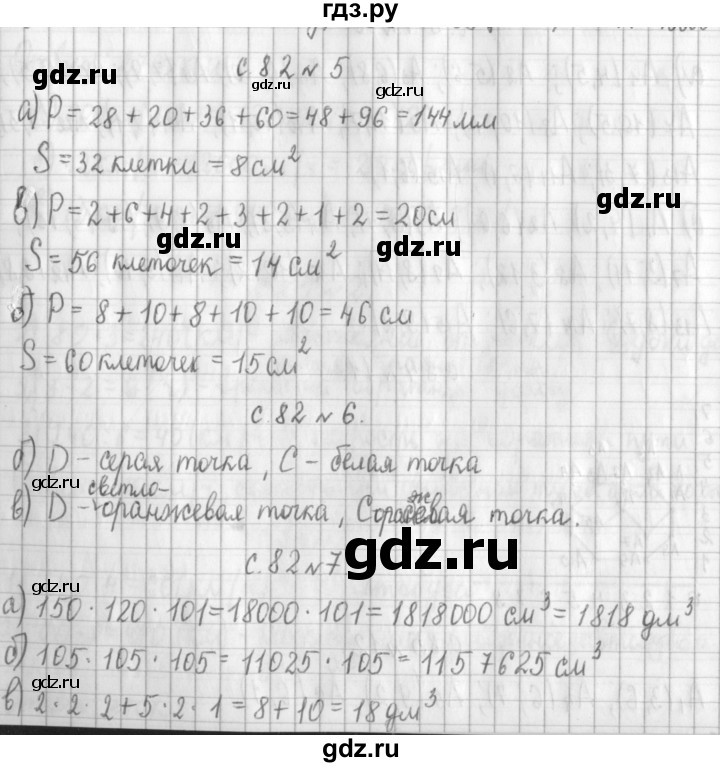 гдз.ру
с.82 № 5
gdz.ru
gdz.ru
а) P = 28 + 20 + 36 + 60 = 48 + 96 = 144 мм
S = 32 клетки = 8 см²
gdz.ru
в) P = 2 + 6 + 4 + 2 + 3 + 2 + 1 + 2 = 20 см
gdz.ru
gdz.ru
S = 56 клеточек = 14 см²
б) P = 8 + 10 + 8 + 10 + 10 = 46 см
S = 60 клеточек = 15 см²
с.82 № 6.
б) D – серая точка, C – белая точка
gdz.ru
в) D – светло-оранжевая точка, C оранжевая точка.
gdz.ru
с.82 № 7
gdz.ru
а) 150 · 120 · 101 = 18000 · 101 = 1818000 см³ = 1818 дм³
б) 105 · 105 · 105 = 11025 · 105 = 1157625 см³
gdz.ru
в) 2 · 2 · 2 + 5 · 2 · 1 = 8 + 10 = 18 дм³
gdz.ru